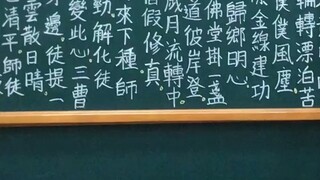 輪轉漂泊苦
僕僕風塵
金線建功
歸鄉明心
佛堂掛一盞
道彼岸登
歲月流轉中
假修真
來下種師
動解化徒
變此心三曹
邊徒提一
雲散日晴
清平師徒